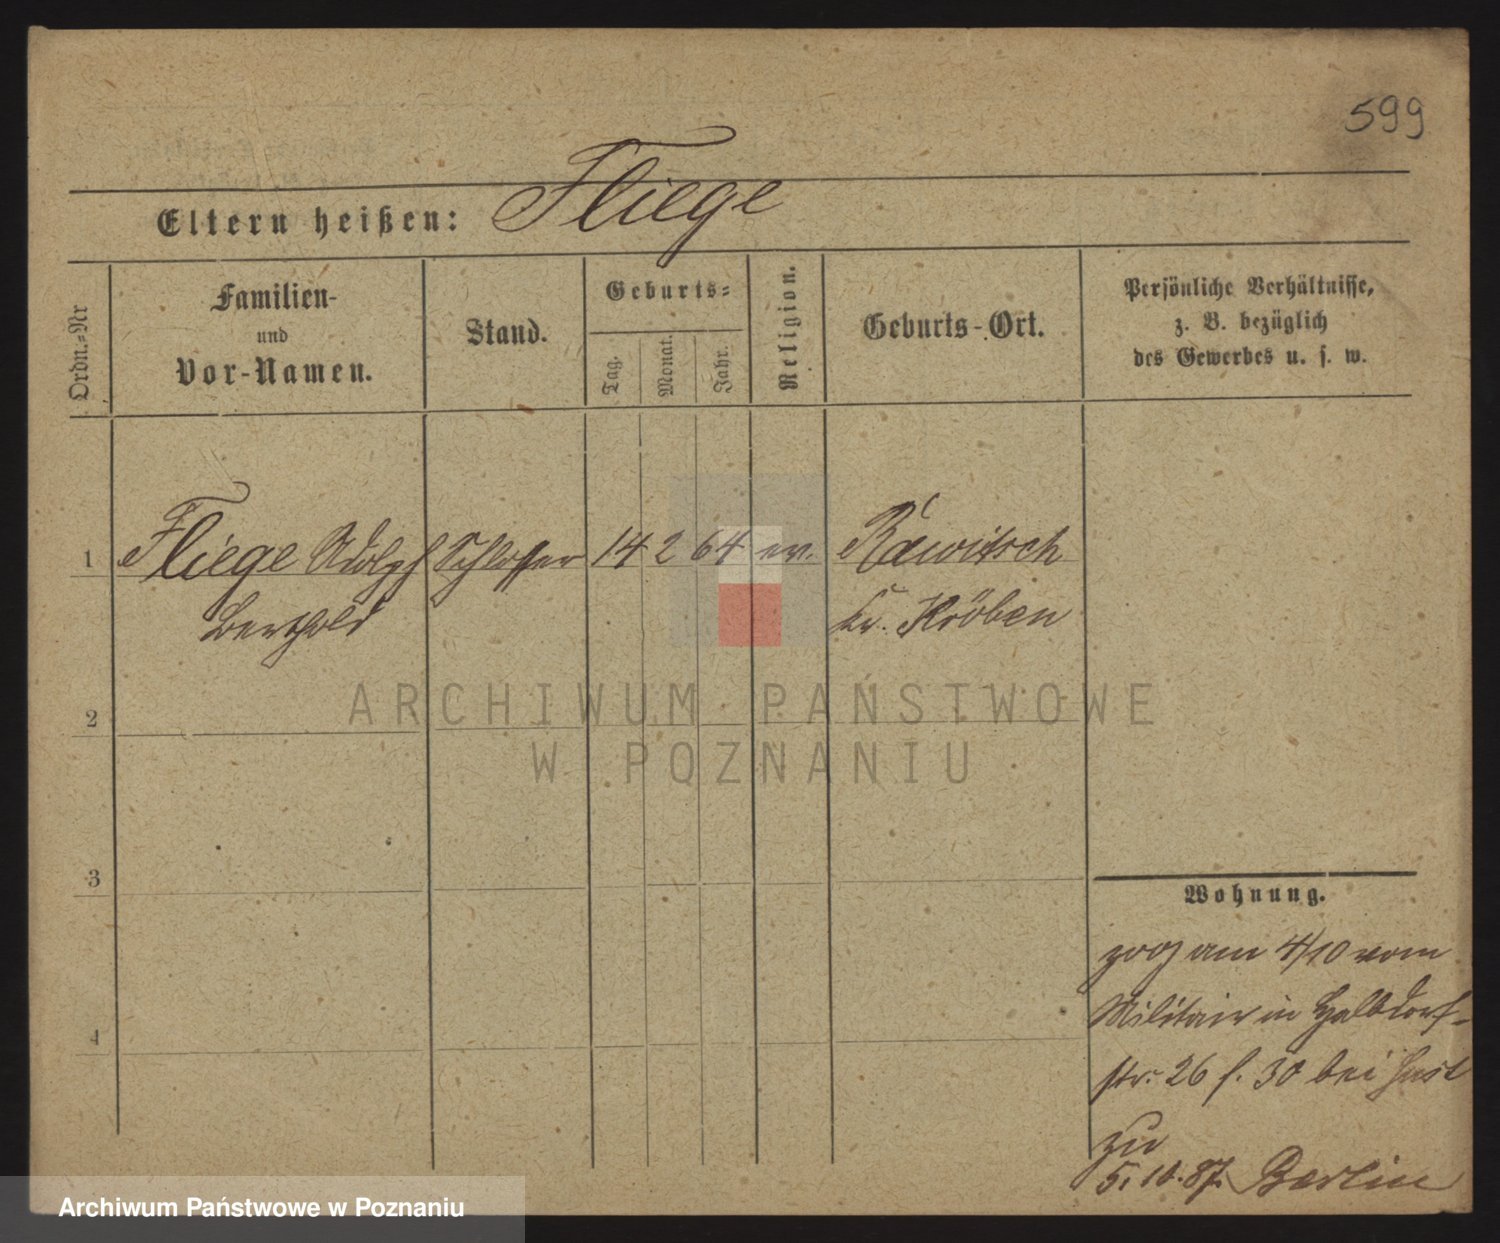 599
Eltern heißen: Fliege
Ordn.-Nr
Familien-
und
Vor-Namen.
Stand.
Geburts-
Tag.
Monat.
Jahr.
Religion.
Geburts-Ort.
Persönliche Verhältnisse,
z. B. bezüglich
des Gewerbes u. s. w.
1 Fliege Adolph Schlosser 14 2 64 ev. Rawitsch
Berthold Kr. Kröben
2
3
4
Wohnung.
zog am 4/10 vom
Militair in Halbdorf-
str. 26 f. 30 bei
zu
5.10.87. Berlin
ARCHIWUM PAŃSTWOWE
W POZNANIU
Archiwum Państwowe w Poznaniu